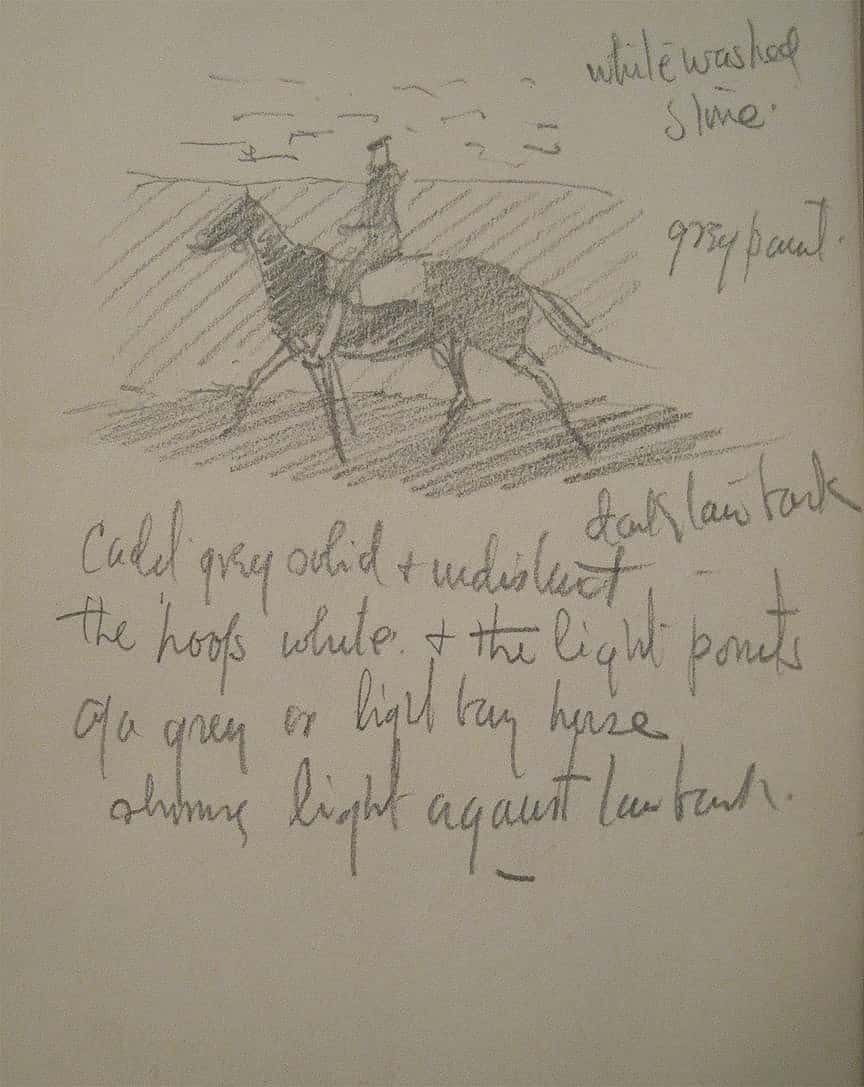 whitewashed
stone.
grey paint.
dark tan bark
Cold grey solid + indistinct
the hoofs white. + the light points
of a grey or light bay horse
shining light against tan bark.